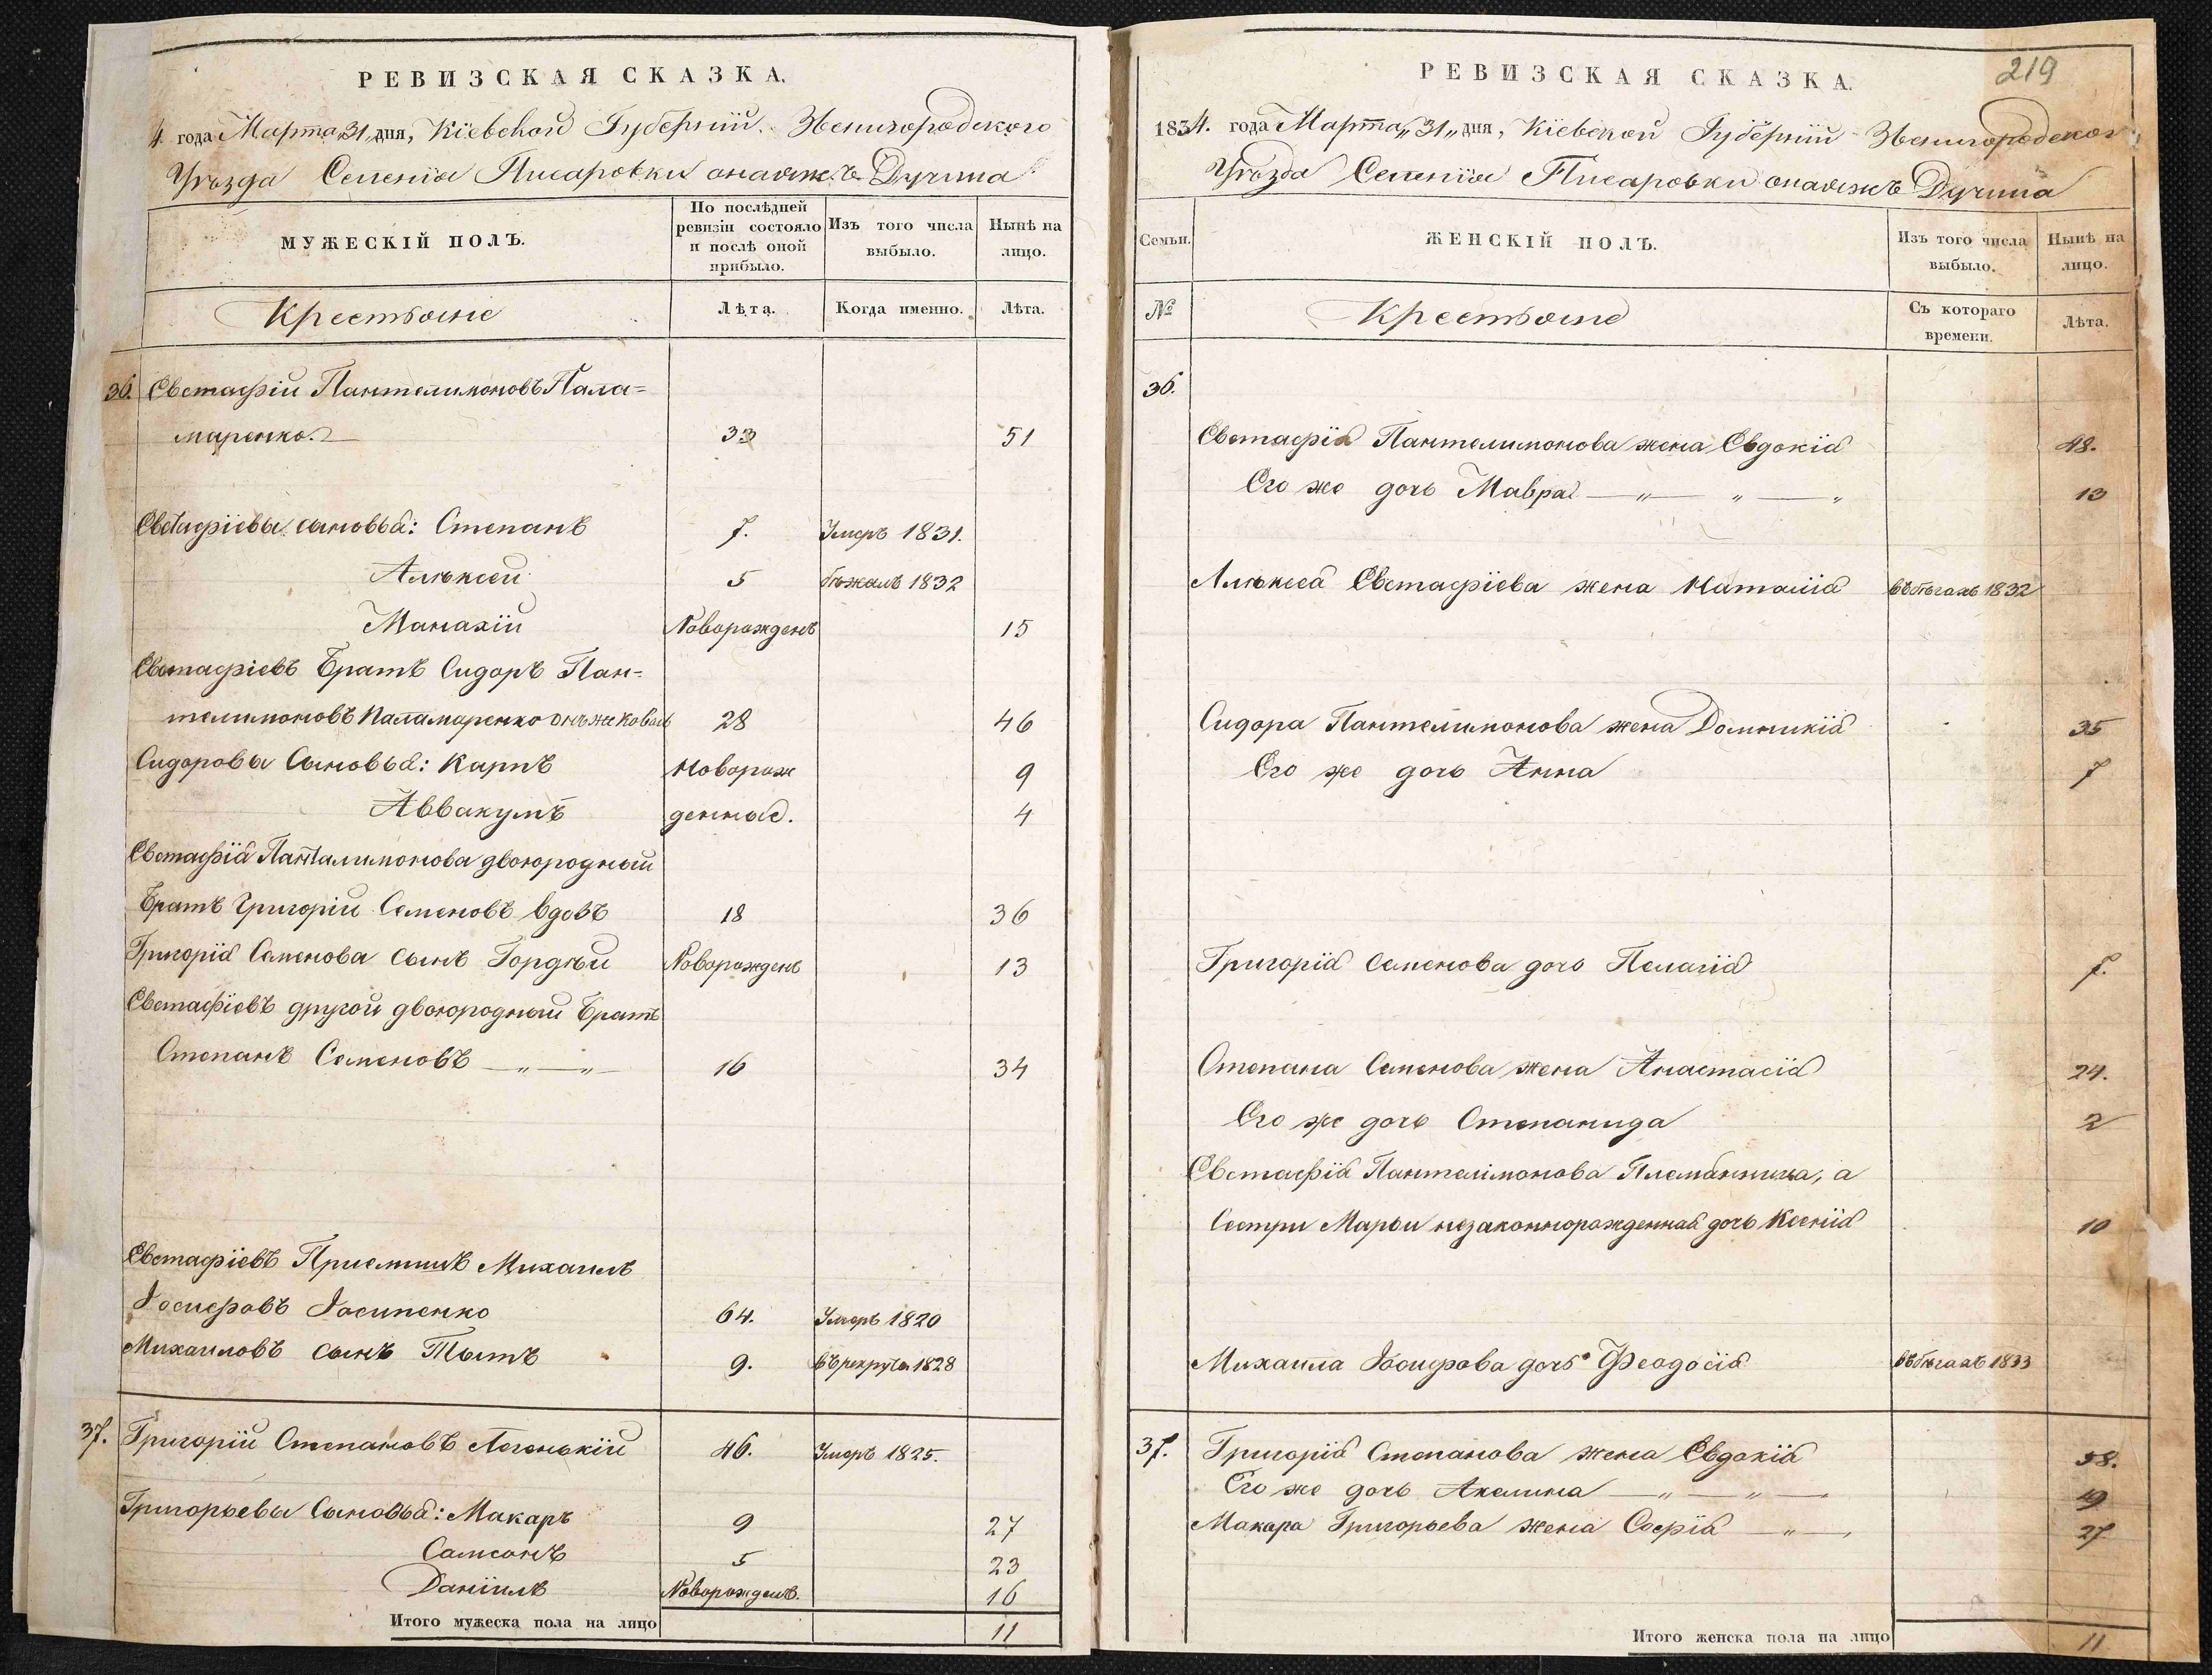 РЕВИЗСКАЯ СКАЗКА.
4. года Марта „31„ дня, Кіевской Губерніи. Звенигородского
Уѣзда Селенія Писаровки онаяжъ Дучина
МУЖЕСКІЙ ПОЛЪ.
По послѣдней ревизіи состояло и послѣ оной прибыло.
Изъ того числа выбыло.
Нынѣ на лицо.
Крестьяне
Лѣта.
Когда именно.
Лѣта.
36. Евстафій Пантелимоновъ Пала=
маренко. 33 51
Евстафіевы сыновья: Степанъ 7. Умеръ 1831.
Алѣксей 5 бѣжалъ 1832
Манахій Новорожденъ 15
Евстафіевъ Братъ Сидоръ Пан=
телимоновъ Паламаренко онъже Коваль 28 46
Сидоровы Сыновья: Карпъ новорож 9
Аввакумъ денные. 4
Евстафія Панталимонова двоюродный
Братъ Григорій Семеновъ вдовъ 18 36
Григорія Семенова сынъ Гордѣй Новорожденъ 13
Евстафіевъ другой двоюродный Братъ
Степанъ Семеновъ — „ — „ — 16 34
Евстафіевъ Приемышъ Михаилъ
Іосифовъ Іосипенко 64. Умеръ 1820
Михаиловъ сынъ Тытъ 9. въ рекруты 1828
37. Григорій Степановъ Легенькій 46. Умеръ 1825.
Григорьевы Сыновья: Макаръ 9 27
Самсонъ 5 23
Даніилъ Новорожденъ. 16
Итого мужеска пола на лицо 11
219
РЕВИЗСКАЯ СКАЗКА.
1834. года Марта „31„ дня, Кіевской Губерніи Звенигородског
Уѣзда Селенія Писаровки онаяжъ Дучина
Семьи.
ЖЕНСКІЙ ПОЛЪ.
Изъ того числа выбыло.
Нынѣ на лицо.
№
Крестьяне
Съ котораго времени.
Лѣта.
36.
Евстафія Пантелимонова жена Евдокія 48.
Его же дочь Мавра — „ — „ — „ 13
Алѣксея Евстафіева жена Наталія въ бѣгахъ 1832
Сидора Пантелимонова жена Домникія 35
Его же дочь Анна 7
Григорія Семенова дочь Пелагія 7.
Степана Семенова жена Анастасія 24.
Его же дочь Степанида 2
Евстафія Пантелімонова Племянница, а
Сестри Марьи незаконнорожденная дочь Ксенія 10
Михаила Іосифова дочь Феодосія въ бѣгахъ 1833
37. Григорія Степанова жена Евдокія 58.
Его же дочь Акелина — „ — „ — 19
Макара Григорьева жена Софія — „ — 27
Итого женска пола на лицо 11